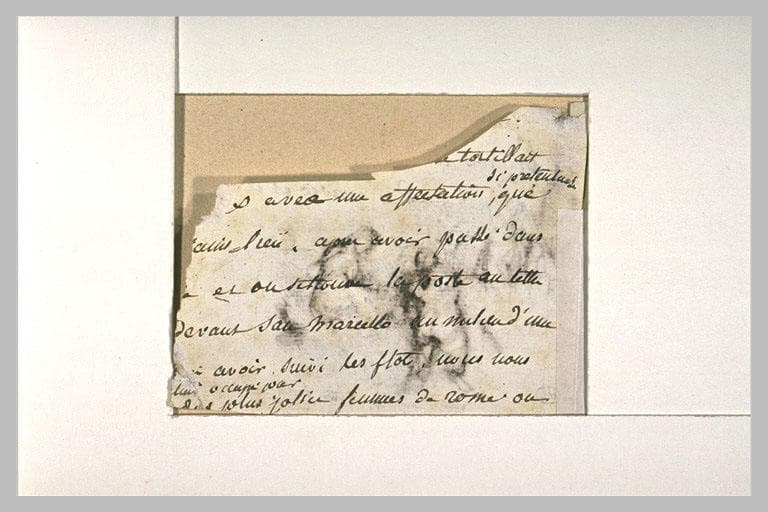 se tortillait
si pretentieuse
s avec une affectation, que
, apres avoir passé dans
et on retrouve la poste aux lettre
devant San Marcello au milieu d'une
avoir suivi les flots, nous nous
occupé par
des plus jolies femmes de rome ou